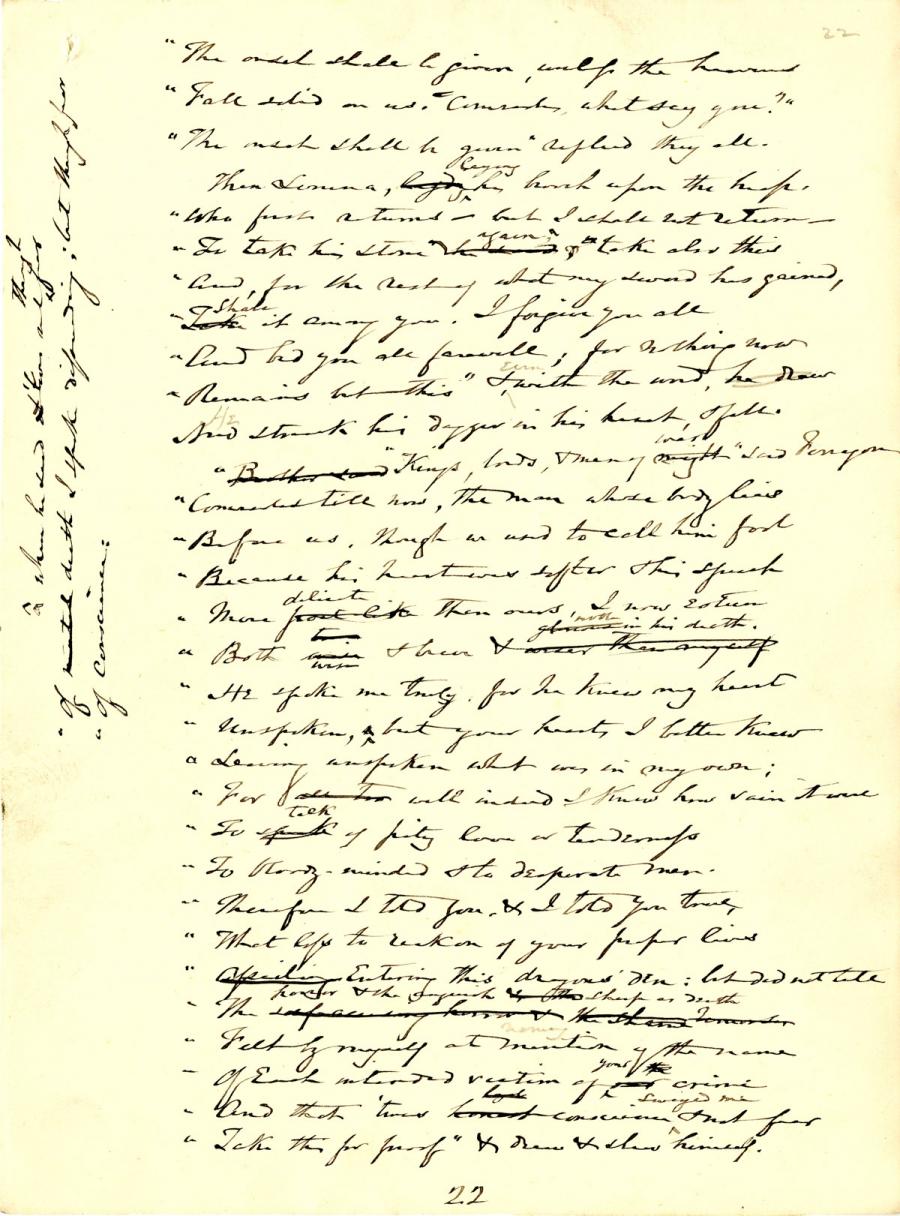 22
"The onset shall be given, unless the heavens
"Fall solid on us." "Comrades, what say you?"
"The onset shall be given" replied they all.
laying
Then Lemma, his brooch upon the heap.
"Who first returns — but I shall not return —
again"
"To take his stone" he said & "take also this
"And, for the rest of what my sword has gained,
Share
"Take it among you. I forgive you all
"And bid you all farewell; for nothing now
Even
"Remains but this" & with the word, he drew
He
And struck his dagger in his heart, & fell.
were
"Brother said "Kings, lords, & men of might" said Ferragon
"Comrades till now, the man whose body lies
"Before us, though we used to call him fool
"Because his heart was softer & his speech
delicate
"More than ours, I now esteem
in his death.
"Both wise & brave & wiser than myself
"He spoke me truly, for he knew my heart
"Unspoken, but your hearts I better knew
"Leaving unspoken what was in my own;
"For well indeed I knew how vain it were
talk
"To speak of pity love or tenderness
"To bloody-minded & to desperate men.
"Therefore I told you, & I told you true,
"What loss to reckon of your proper lives
"Entering this dragons' den: but did not tell
horror & the anguish sharp as death
"The horror & the shame
naming
"Felt by myself at mention of the name
your the
"Of each intended victim of crime
swayed me
"And that 'twas honest conscience & not fear
"Take this for proof" & drew & slew himself.
22
though
"of death I speak despising; but though fear
"of Conscience: